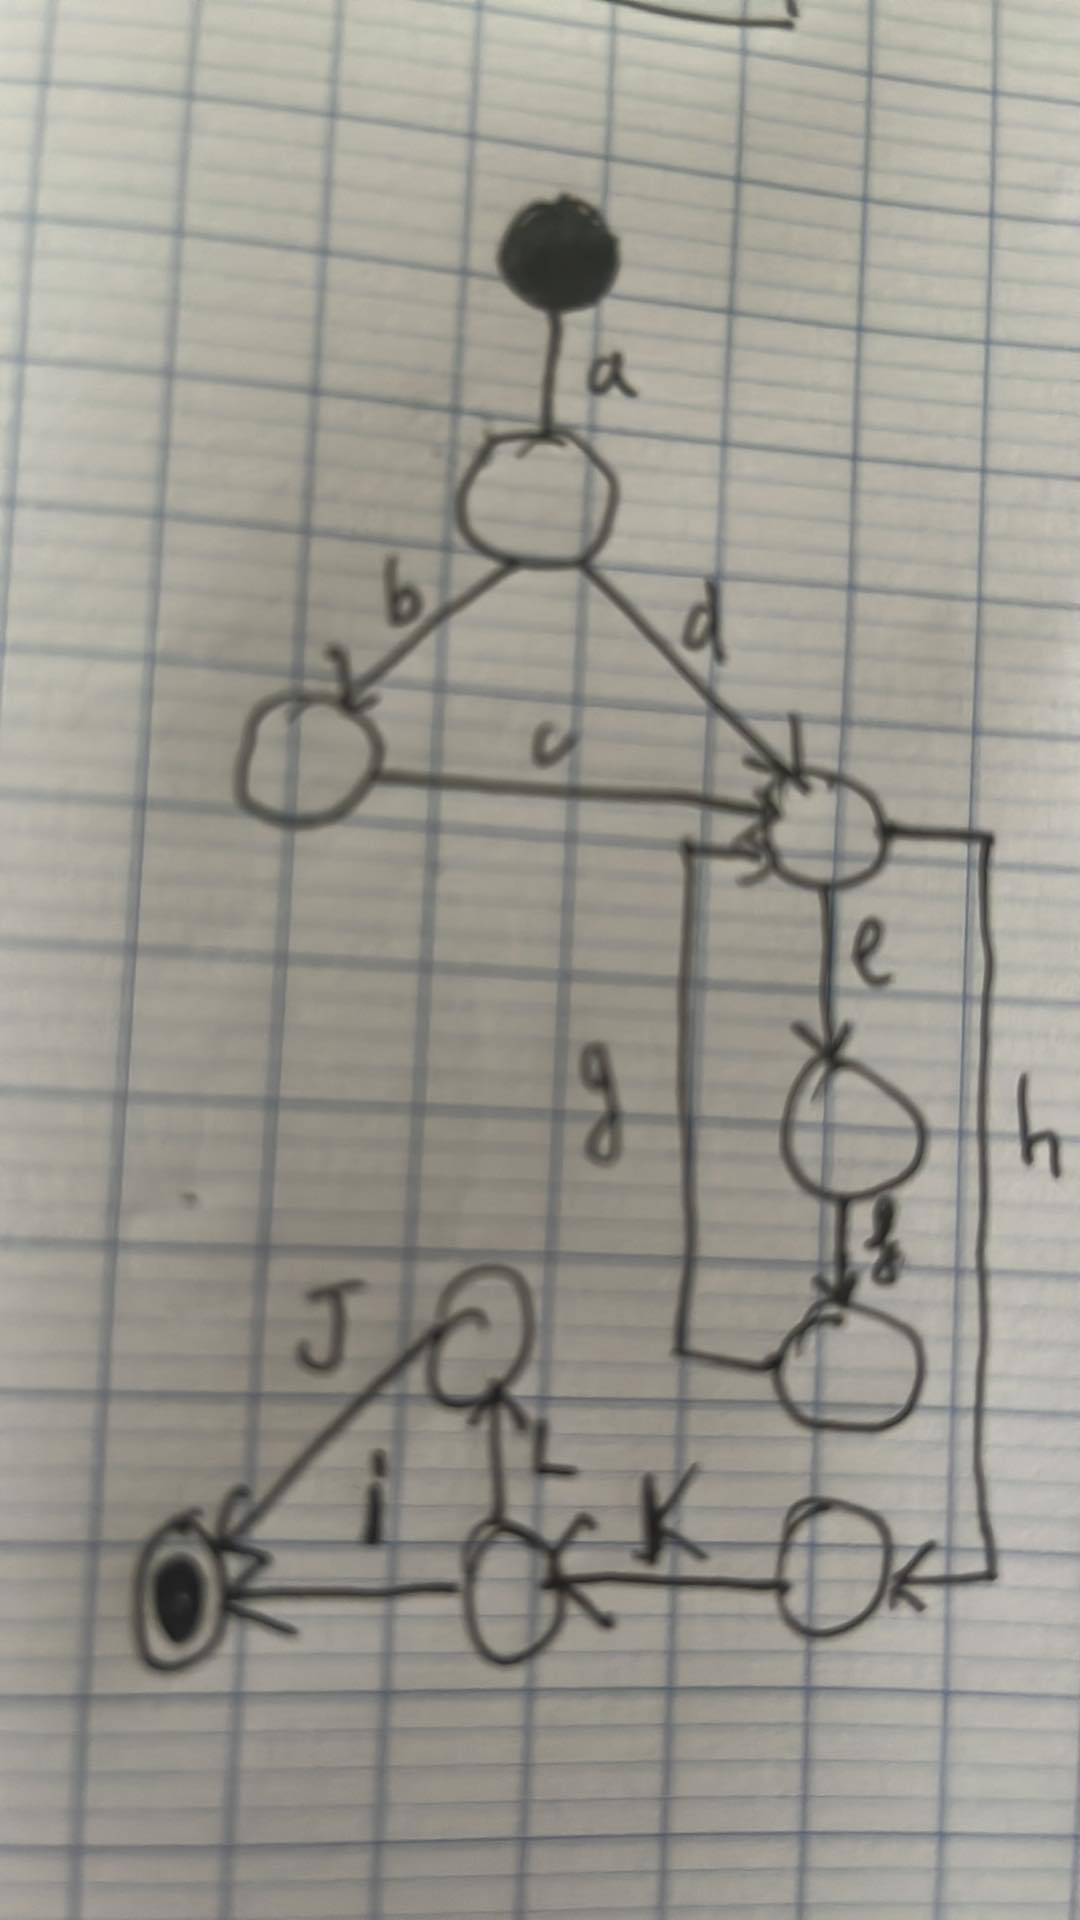 a
b
d
c
e
g
h
J
L
i
K